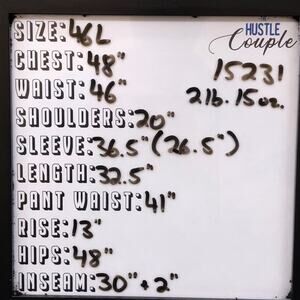 HUSTLE
Couple
SIZE: 46L
CHEST: 48"
15231
WAIST: 46"
2lb. 15oz.
SHOULDERS: 20"
SLEEVE: 36.5" (26.5")
LENGTH: 32.5"
PANT WAIST: 41"
RISE: 13"
HIPS: 48"
INSEAM: 30" + 2"